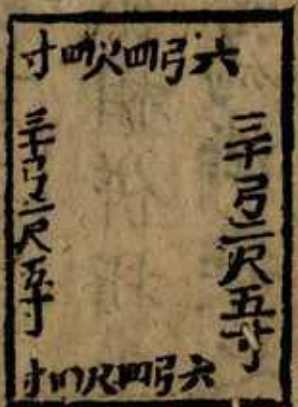 六弓四尺四寸
三十弓二尺五寸
三十弓二尺五寸
六弓四尺四寸